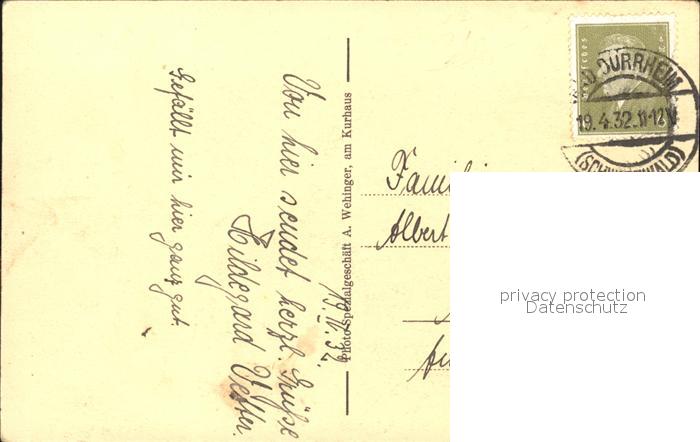 19.IV.32.
Von hier sendet herzl. Grüße
Hildegard Vetter.
Gefällt mir hier ganz gut.
Photo-Spezialgeschäft A. Wehinger, am Kurhaus
BAD DÜRRHEIM
19.4.32.11-12V
(SCHWARZWALD)
Famili
Albert
privacy protection
Datenschutz